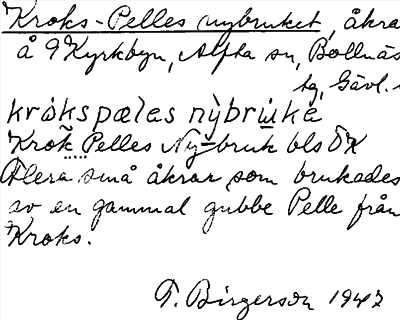 Kroks-Pelles nybruket, åkra
å 9 Kyrkbyn, Alfta sn, Bollnäs
tg, Gävl.
krokspæles nỳbrukẹ
Krok Pelles Ny-bruk bls ÖK
Flera små åkrar som brukades
av en gammal gubbe Pelle från
Kroks.
T. Birgerson 1943